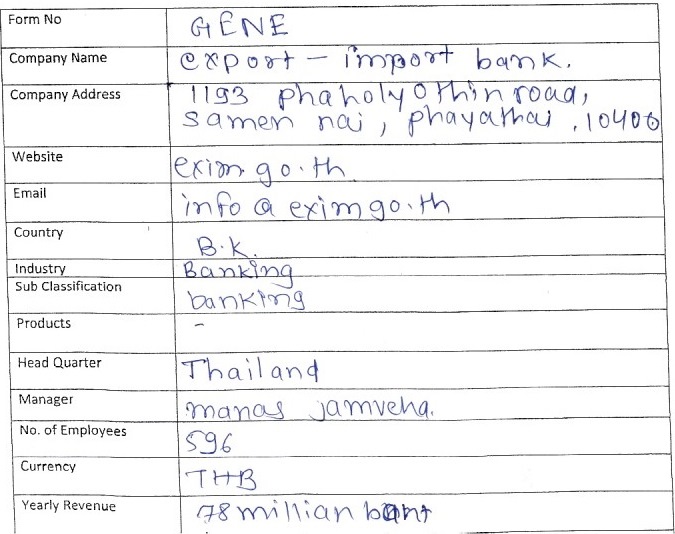 Form No GENE
Company Name export - import bank.
Company Address 1193 phaholyothin road,
samen nai, phayathai, 10400
Website exim.go.th
Email info@eximgo.th
Country B.K.
Industry Banking
Sub Classification banking
Products -
Head Quarter Thailand
Manager manas jamveha.
No. of Employees 596
Currency THB
Yearly Revenue 78 millian bant